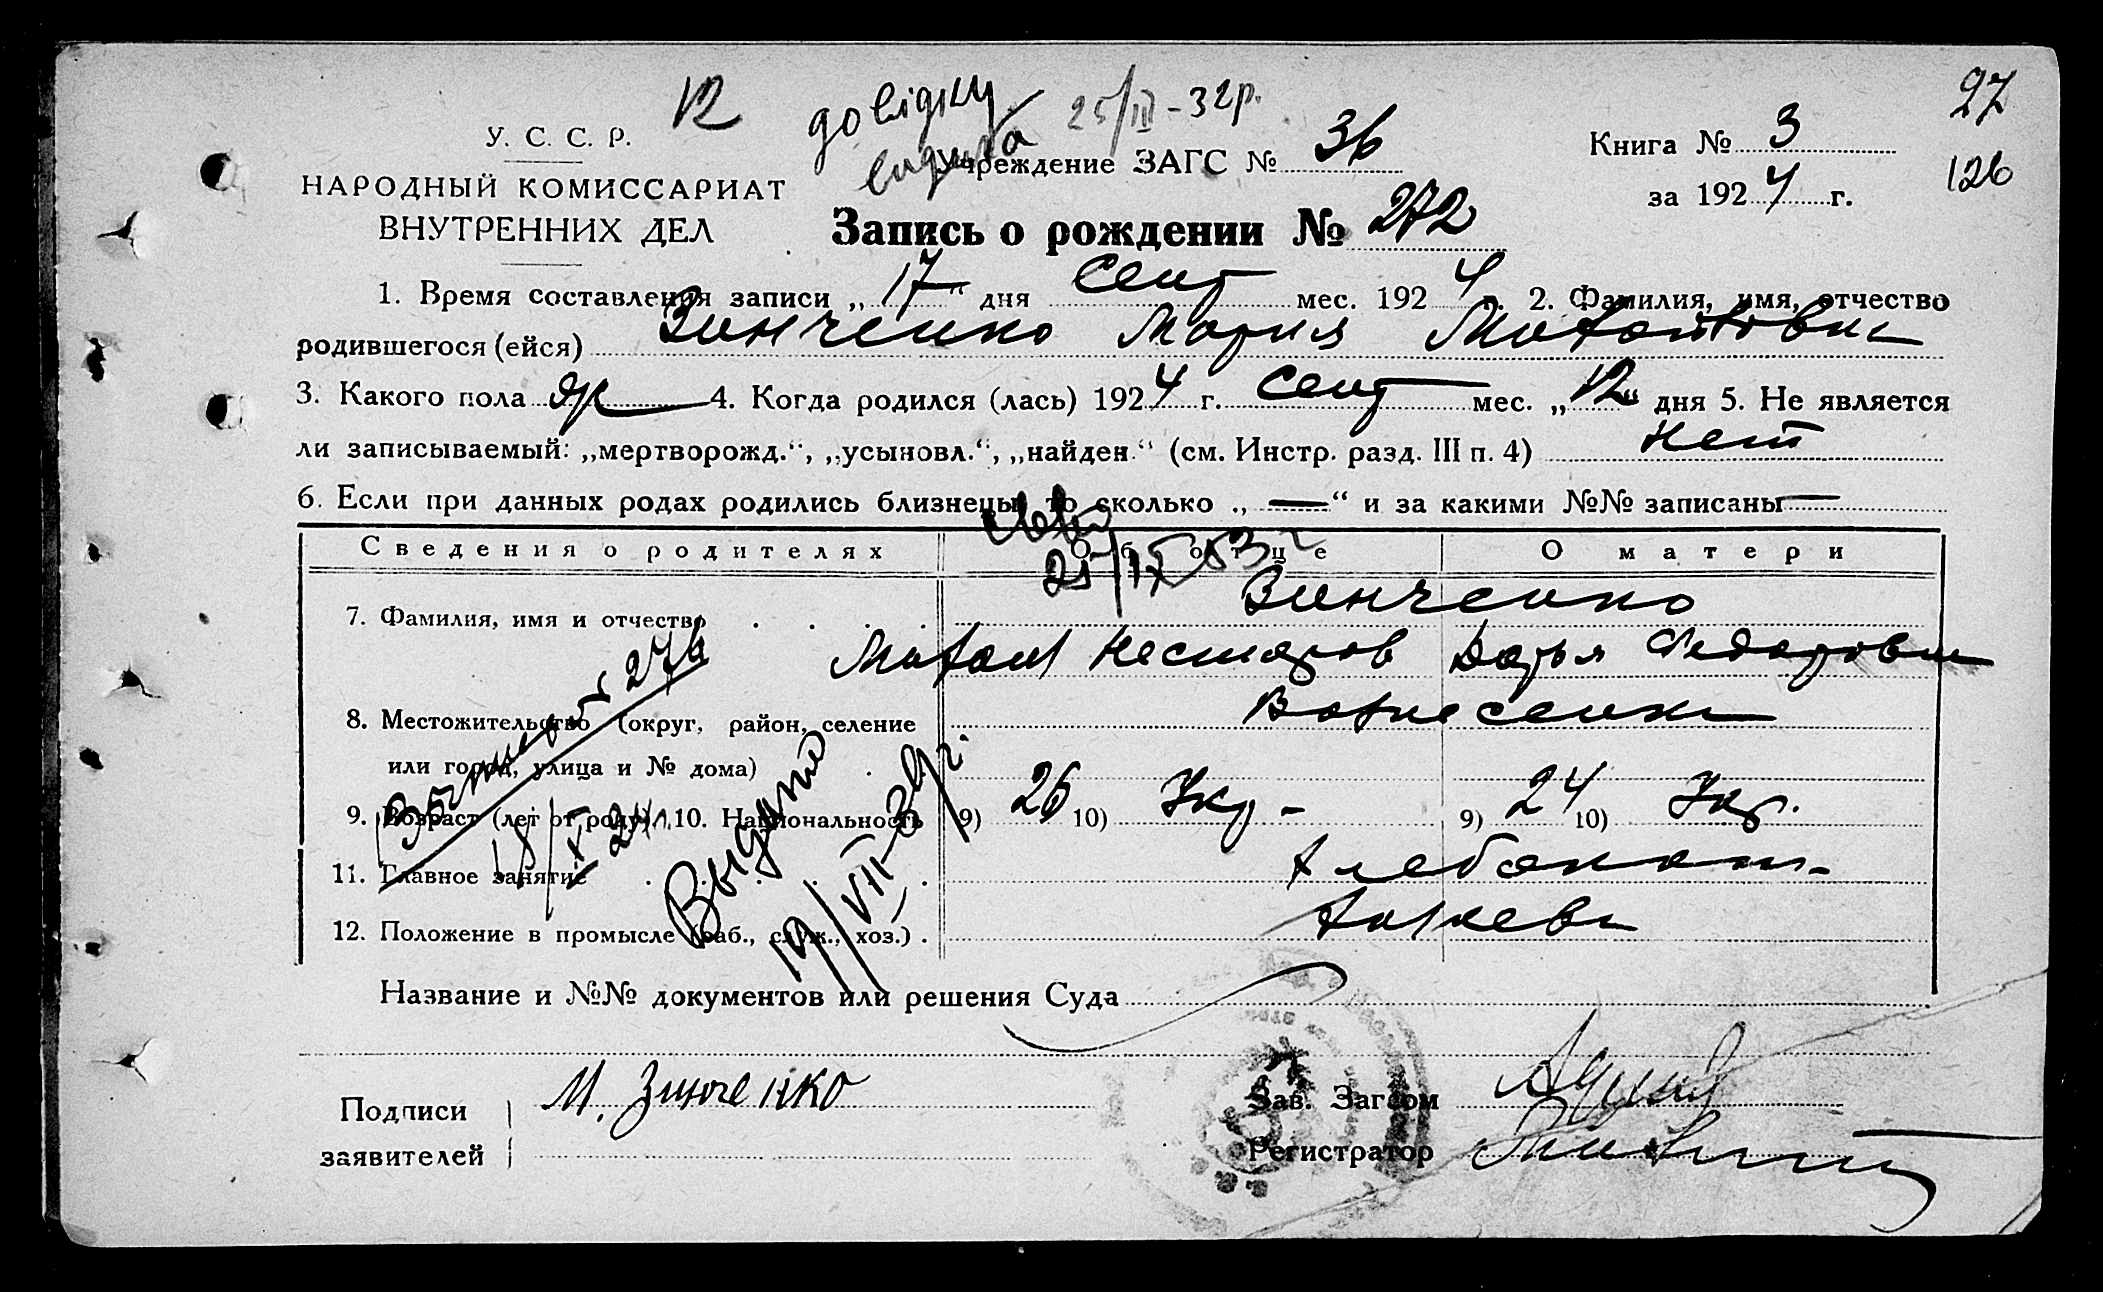 12 довідку 25/III-32р. 27
У. С. С. Р.
Учреждение ЗАГС № 36 Книга № 3
126
НАРОДНЫЙ КОМИССАРИАТ за 1924 г.
ВНУТРЕННИХ ДЕЛ
Запись о рождении № 272
1. Время составления записи „17“ дня Сент мес. 1924 г. 2. Фамилия, имя, отчество
родившегося (ейся) Зинченко Мария Михайловн
3. Какого пола 4. Когда родился (лась) 1924 г. Сент мес. „12“ дня 5. Не является
ли записываемый: „мертворожд.“, „усыновл.“, „найден.“ (см. Инстр. разд. III п. 4) Нет
6. Если при данных родах родились близнецы, то сколько „—“ и за какими №№ записаны —
Сведения о родителях Об отце О матери
25/IX 53 г
7. Фамилия, имя и отчество Зинченко
Михаил Несторов Дарья Федоровн
276
8. Местожительство (округ, район, селение Вознесенка
или город, улица и № дома)
9. Возраст (лет от роду) 10. Национальность 9) 26 10) Укр- 9) 24 10) Укр.
18/XI 24
11. Главное занятие Хлебопаш-
12. Положение в промысле (раб., служ., хоз.) Хозяев
Выдано
19/VII-39г.
Название и №№ документов или решения Суда
Подписи М. Зинченко Зав. Загсом
заявителей Регистратор